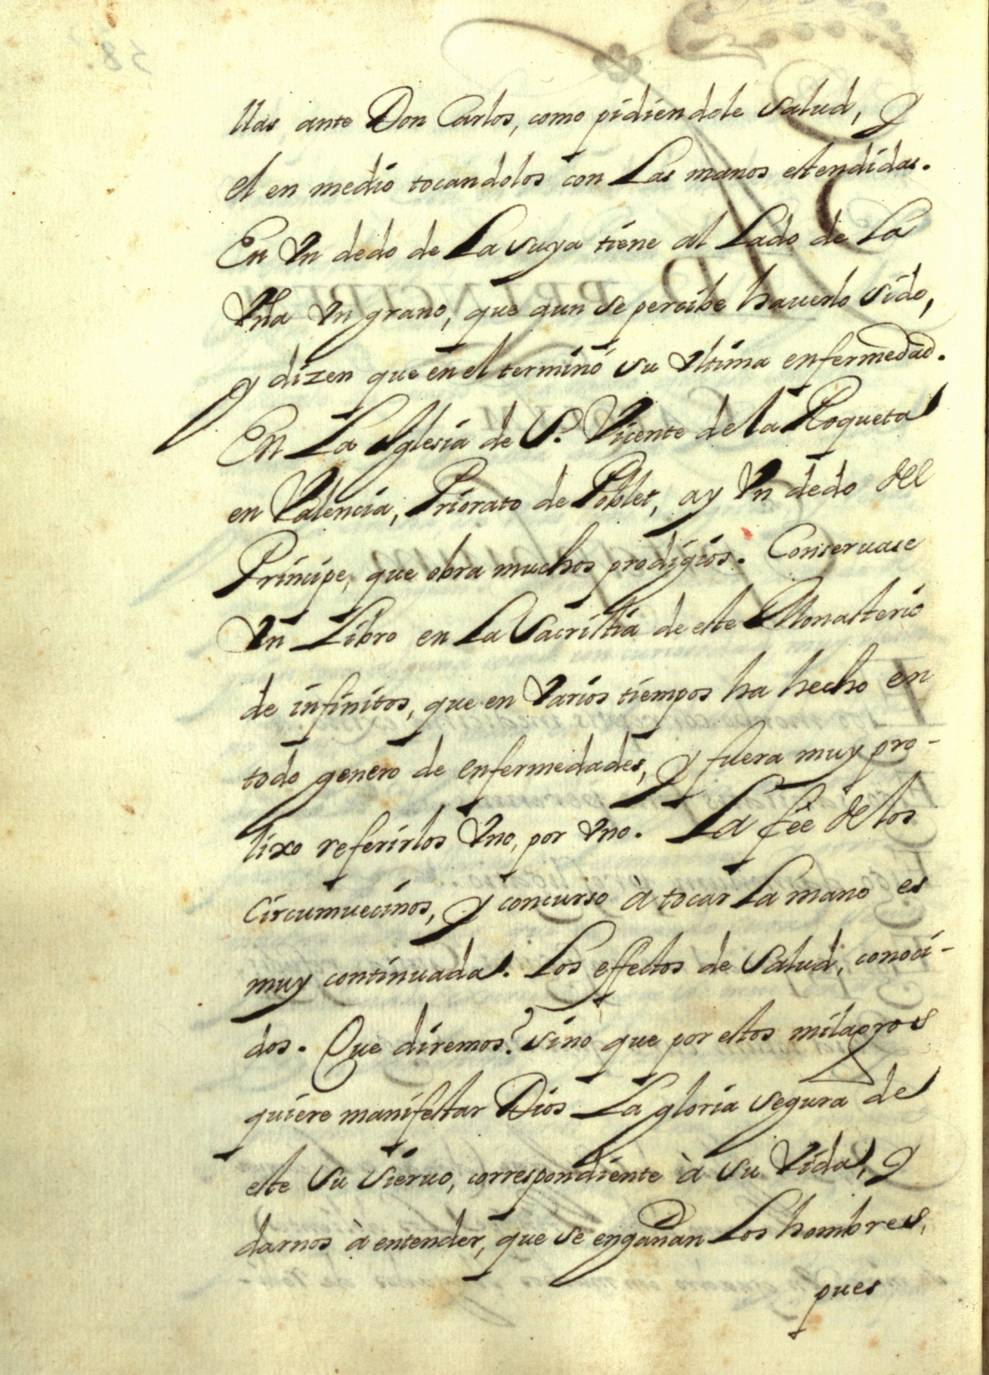 llas ante Don Carlos, como pidiendole salud, y
el en medio tocandolos con las manos estendidas.
En Vn dedo de la suya tiene al lado de la
Vña Vn grano, que aun se percibe hauerlo sido,
y dizen que en el terminó su vltima enfermedad.
En La Yglesia de S. Vicente de la Roqueta
en Valencia, Priorato de Poblet, ay Vn dedo del
Principe, que obra muchos prodigios. Conseruase
Vn Libro en La Sacristia de este Monasterio
de infinitos, que en Varios tiempos ha hecho en
todo genero de enfermedades, y fuera muy pro-
lixo referirlos Vno, por Vno. La feè de los
Circumuecinos, y concurso à tocar la mano es
muy continuada. Los effectos de Salud, conoci-
dos. Que diremos? sino que por estos milagros
quiere manifestar Dios La gloria segura de
este su sieruo, correspondiente à su Vida, y
darnos à entender, que se engañan Los hombres,
pues